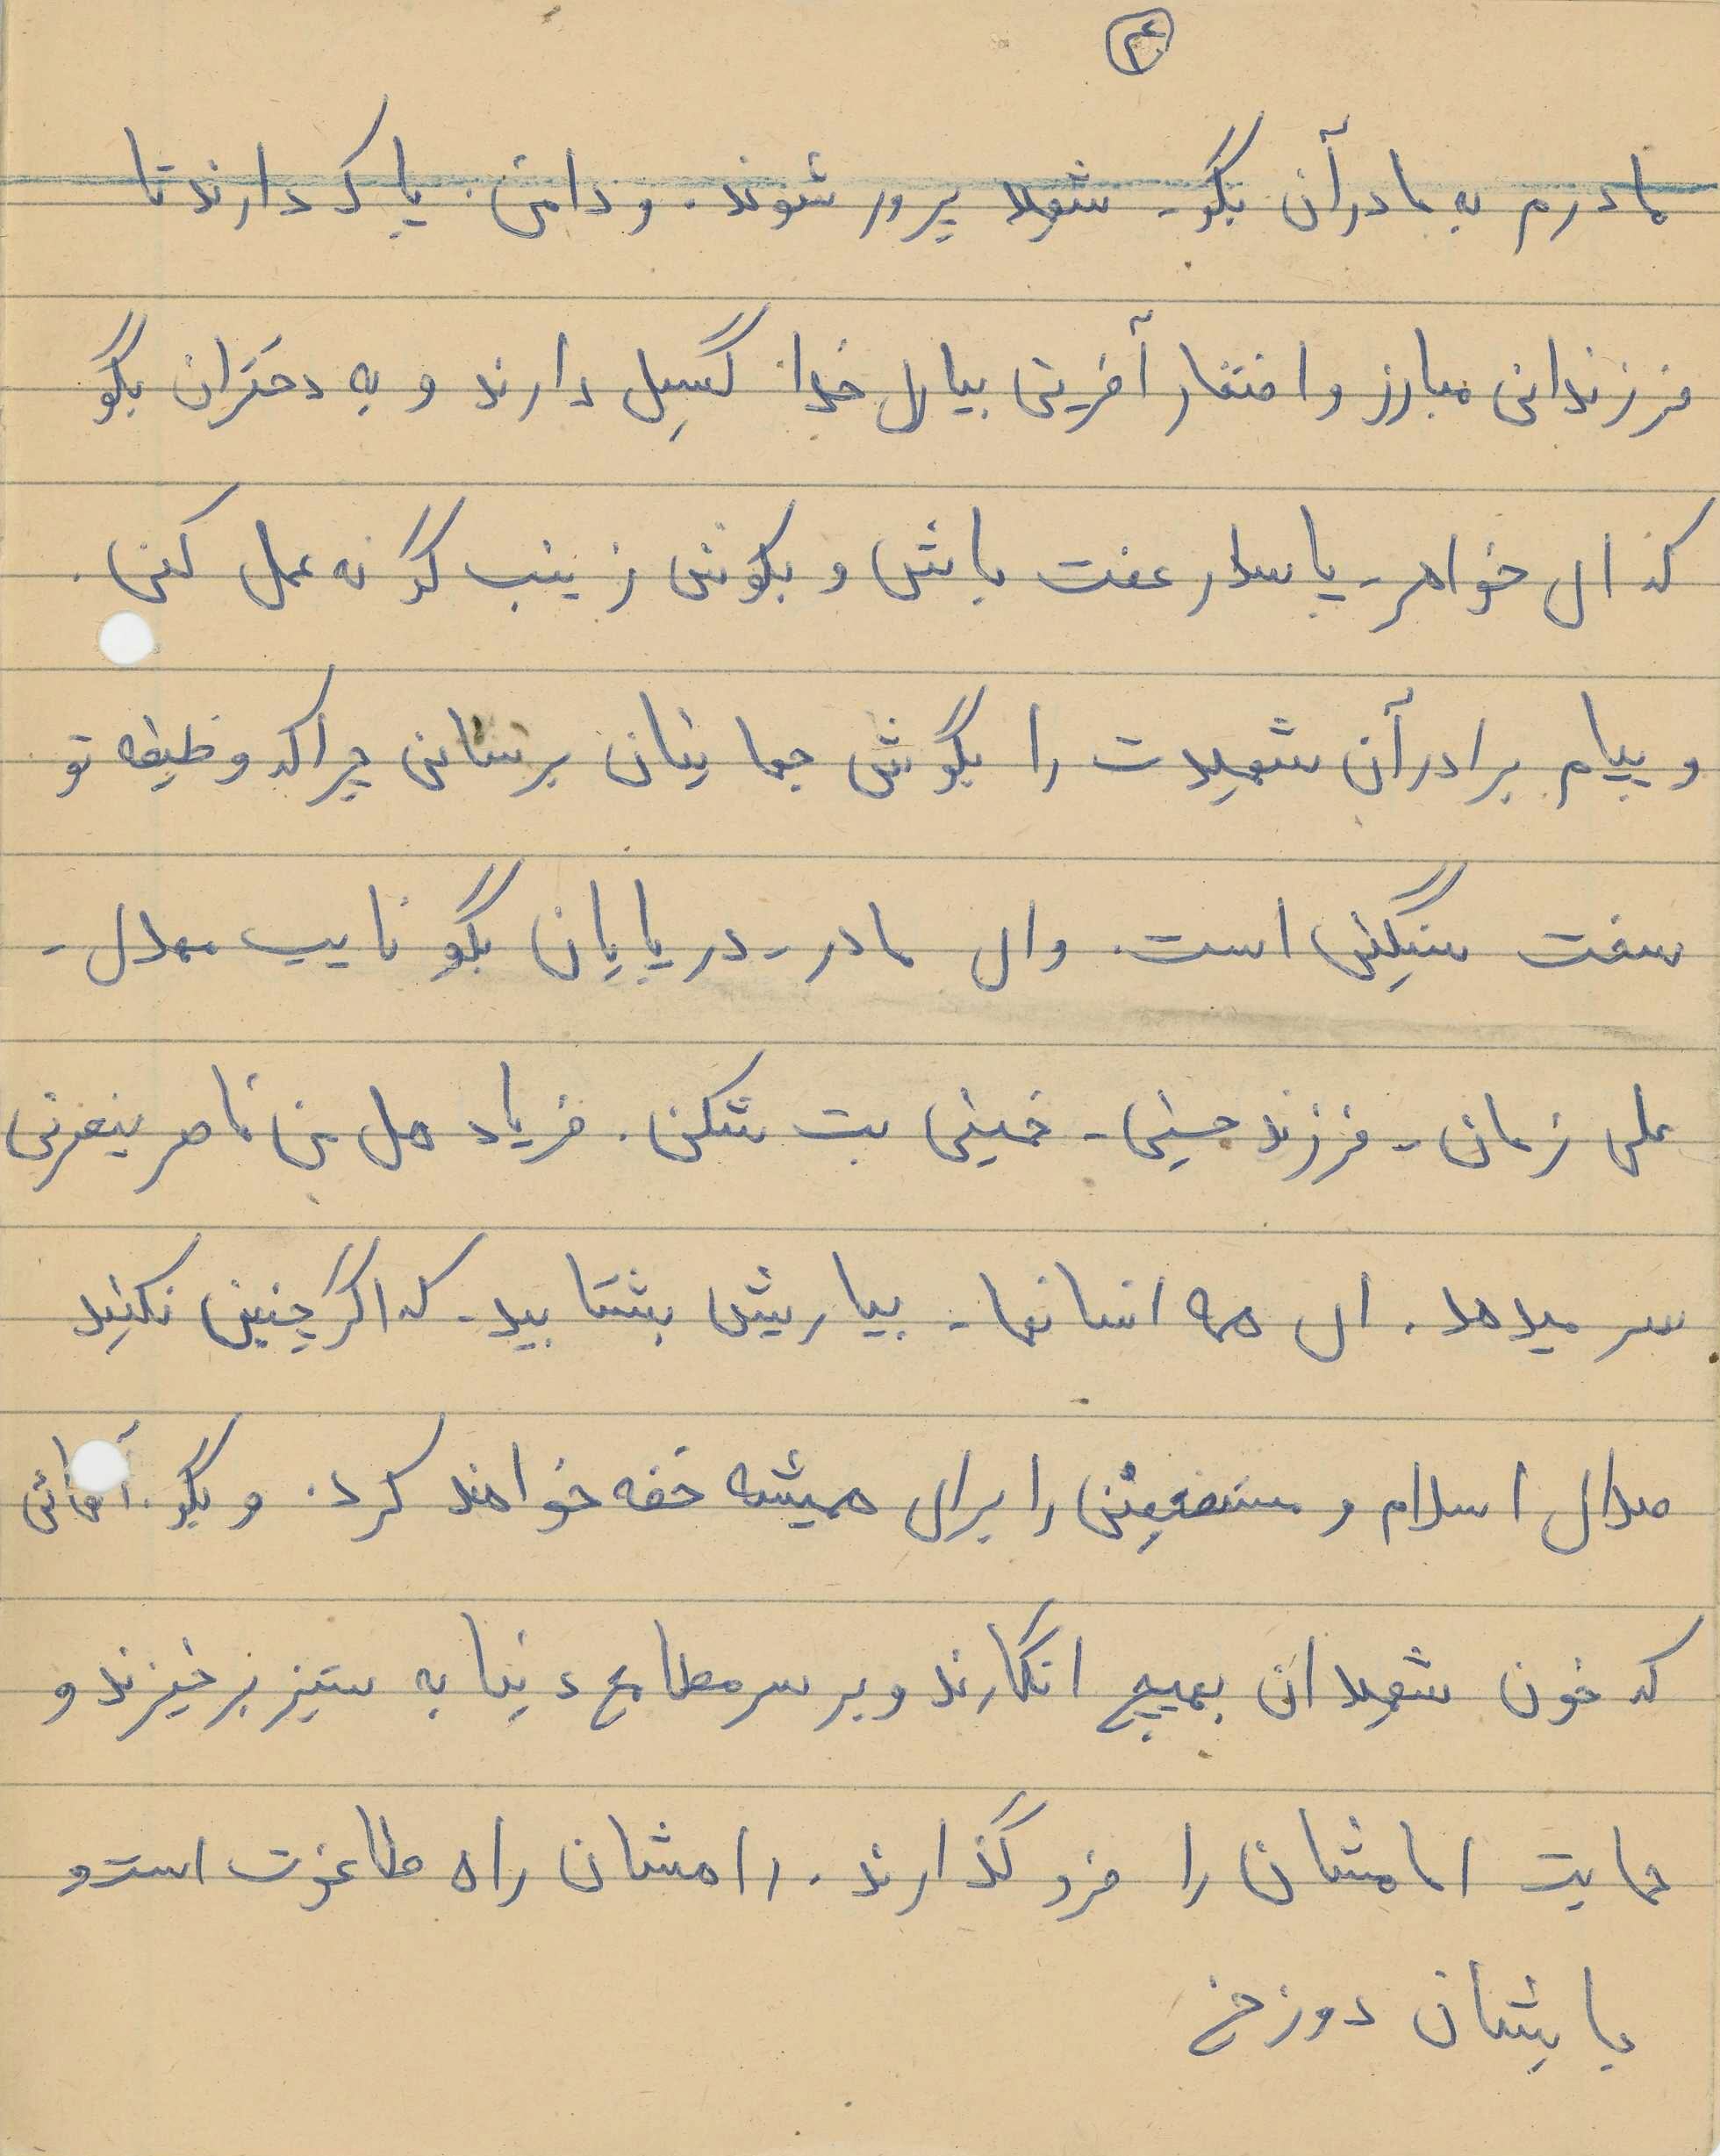 ۴
مادرم به مادرآن بگو- شهید پرور شوند. و دامنی پاک دارند تا
فرزندانی مبارز و افتخار آفرینی بیاری خدا گسیل دارند و به دختران بگو
که ای خواهر- پاسدار عفت باش و بکوش زینب گونه عمل کنی.
و پیام برادرآن شهیدت را بگوش جهانیان برسانی چراکه وظیفه تو
سخت سنگین است. و ای مادر- در پایان بگو نایب مهدی-
علی زمان- فرزند حسین- خمینی بت شکن. فریاد هل من ناصر ینصرنی
سر میدهد. ای همه انسانها- بیاریش بشتابید- که اگر چنین نکنید
صدای اسلام و مستضعفین را برای همیشه خفه خواهند کرد. و بگو.
که خون شهیدان بهیچ انگارند و بر سر مطامع دنیا به ستیز برخیزند و
حمایت امامشان را فرو گذارند. راهشان راه طاغوت است و
جایشان دوزخ